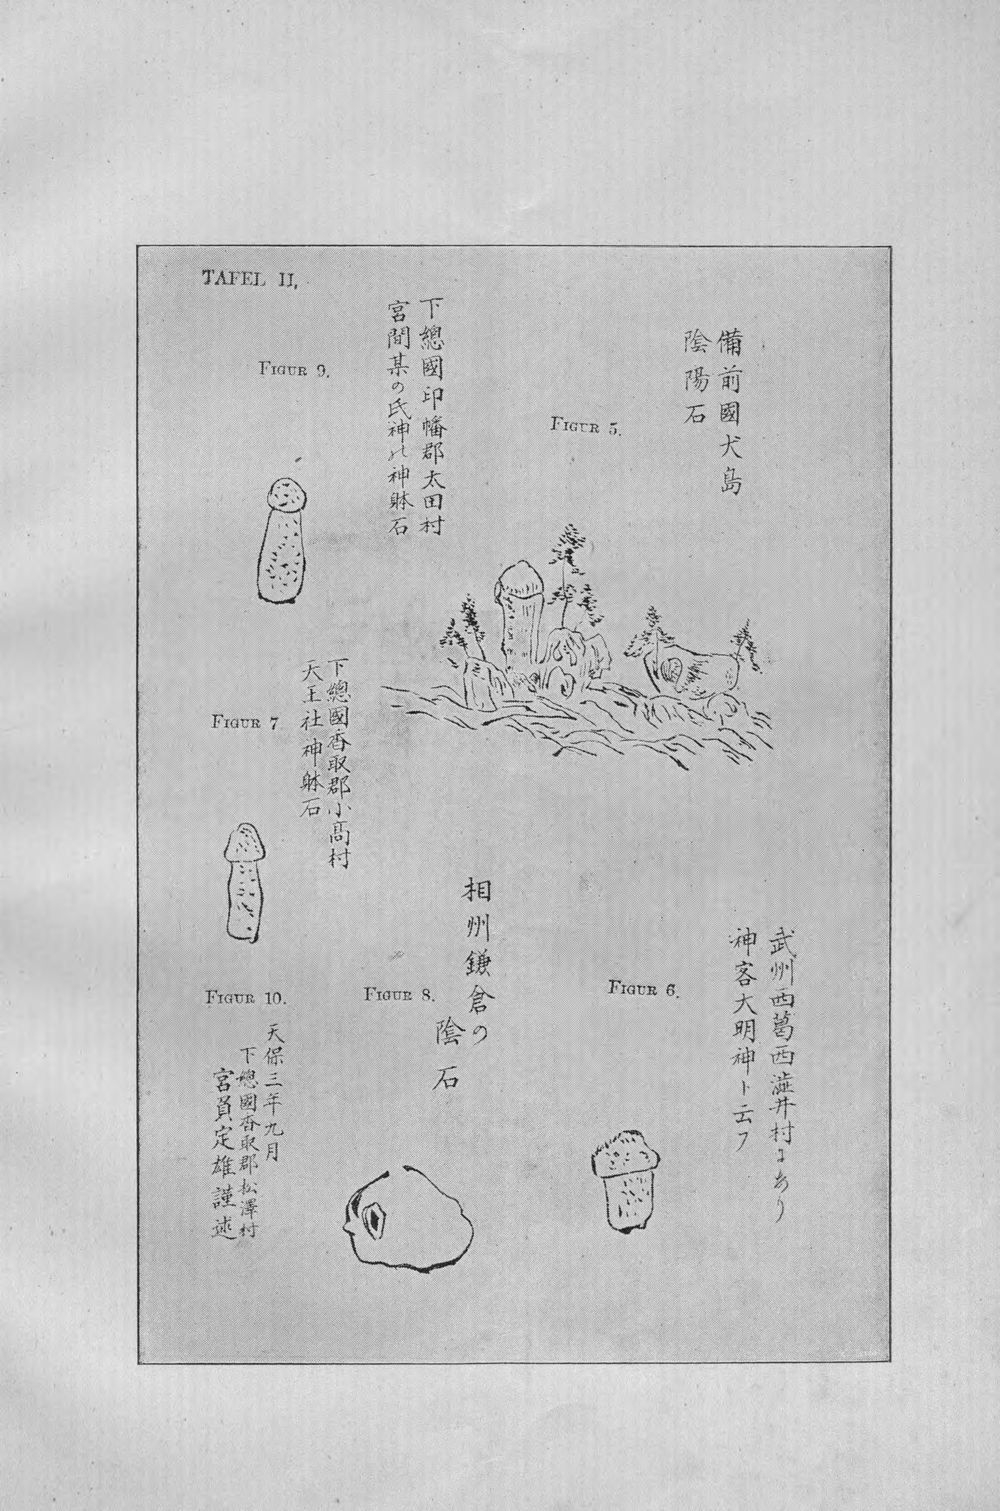 TAFEL II,
FIGUR 5.
備前國犬島
陰陽石
FIGUR 9.
下總國印幡郡太田村
宮間某の氏神の神躰石
FIGUR 7
下總國香取郡小髙村
天王社神躰石
FIGUR 6.
武州西葛西澁井村にあり
神客大明神ト云フ
FIGUR 8.
相州鎌倉の
陰石
FIGUR 10.
天保三年九月
下總國香取郡松澤村
宮負定雄謹述